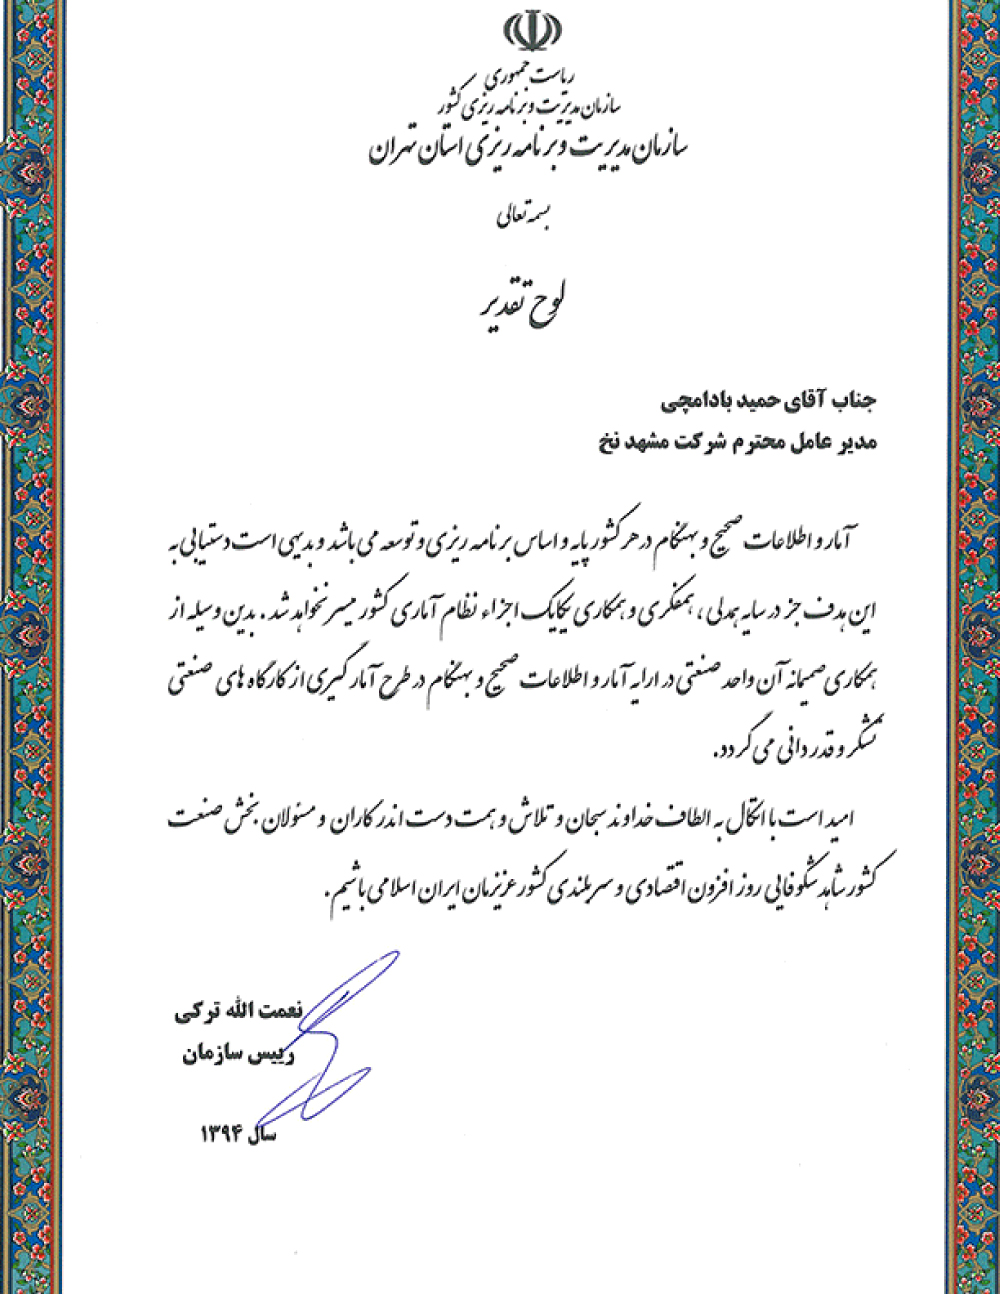 ریاست جمهوری
سازمان مدیریت و برنامه ریزی کشور
سازمان مدیریت و برنامه ریزی استان تهران
بسمه تعالی
لوح تقدیر
جناب آقای حمید بادامچی
مدیر عامل محترم شرکت مشهد نخ
آمار و اطلاعات صحیح و بهنگام در هر کشور پایه و اساس برنامه ریزی و توسعه می باشد و بدیهی است دستیابی به
این هدف جز در سایه همدلی ، همفکری و همکاری یکایک اجزاء نظام آماری کشور میسر نخواهد شد . بدین وسیله از
همکاری صمیمانه آن واحد صنعتی در ارایه آمار و اطلاعات صحیح و بهنگام در طرح آمارگیری از کارگاه های صنعتی
تشکر و قدردانی می گردد.
امید است با اتکال به الطاف خداوند سبحان و تلاش و همت دست اندرکاران و مسئولان بخش صنعت
کشور شاهد شکوفایی روز افزون اقتصادی و سربلندی کشور عزیزمان ایران اسلامی باشیم .
نعمت الله ترکی
رییس سازمان
سال ۱۳۹۴